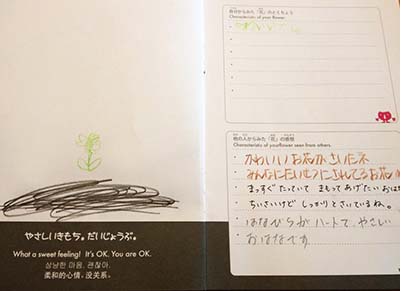 やさしいきもち。だいじょうぶ。
What a sweet feeling! It's OK. You are OK.
상냥한 마음. 괜찮아.
柔和的心情。没关系。
自分からみた「花」のとくちょう
Characteristics of your flower
他の人からみた「花」の感想
Characteristics of yourflower seen from others.
かわいいお花がさいたネ
みんなにたいせつにされてるお花
まっすぐたっていて まもってあげたい おはな
ちいさいけど しっかりとさいているね。
はなびらが ハートで、やさしい
おはなです